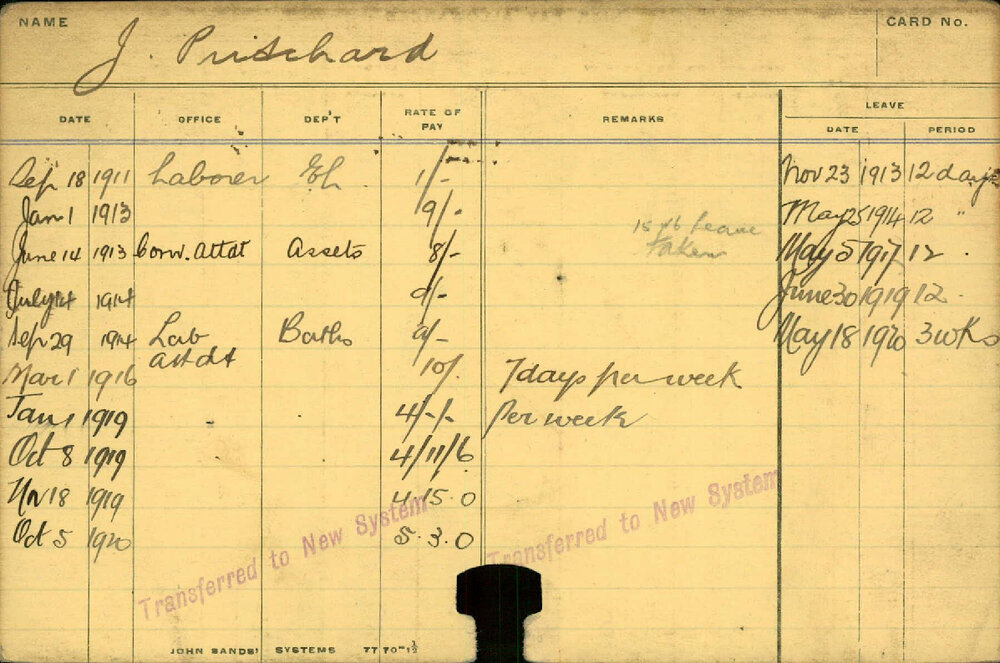 NAME CARD No.
J. Pritchard
LEAVE
DATE OFFICE DEP'T RATE OF PAY REMARKS DATE PERIOD
Sep 18 1911 Laborer 1/- Nov 23 1913 12 days
Jan 1 1913 9/- May 25 1914 12 "
15 leave
taken
June 14 1913 Conv. Attdt Assets 8/- May 5 1917 12 "
July 14 1914 9/- June 30 1919 12 "
Sep 29 1914 Lav Baths 9/- May 18 1920 3 wks
attdt
Mar 1 1916 10/. 7 days per week
Jan 1 1919 4/-/- Per week
Oct 8 1919 4/11/6
Nov 18 1919 4.15.0
Oct 5 1920 5.3.0
Transferred to New System
Transferred to New System
JOHN SANDS' SYSTEMS 7770-1½